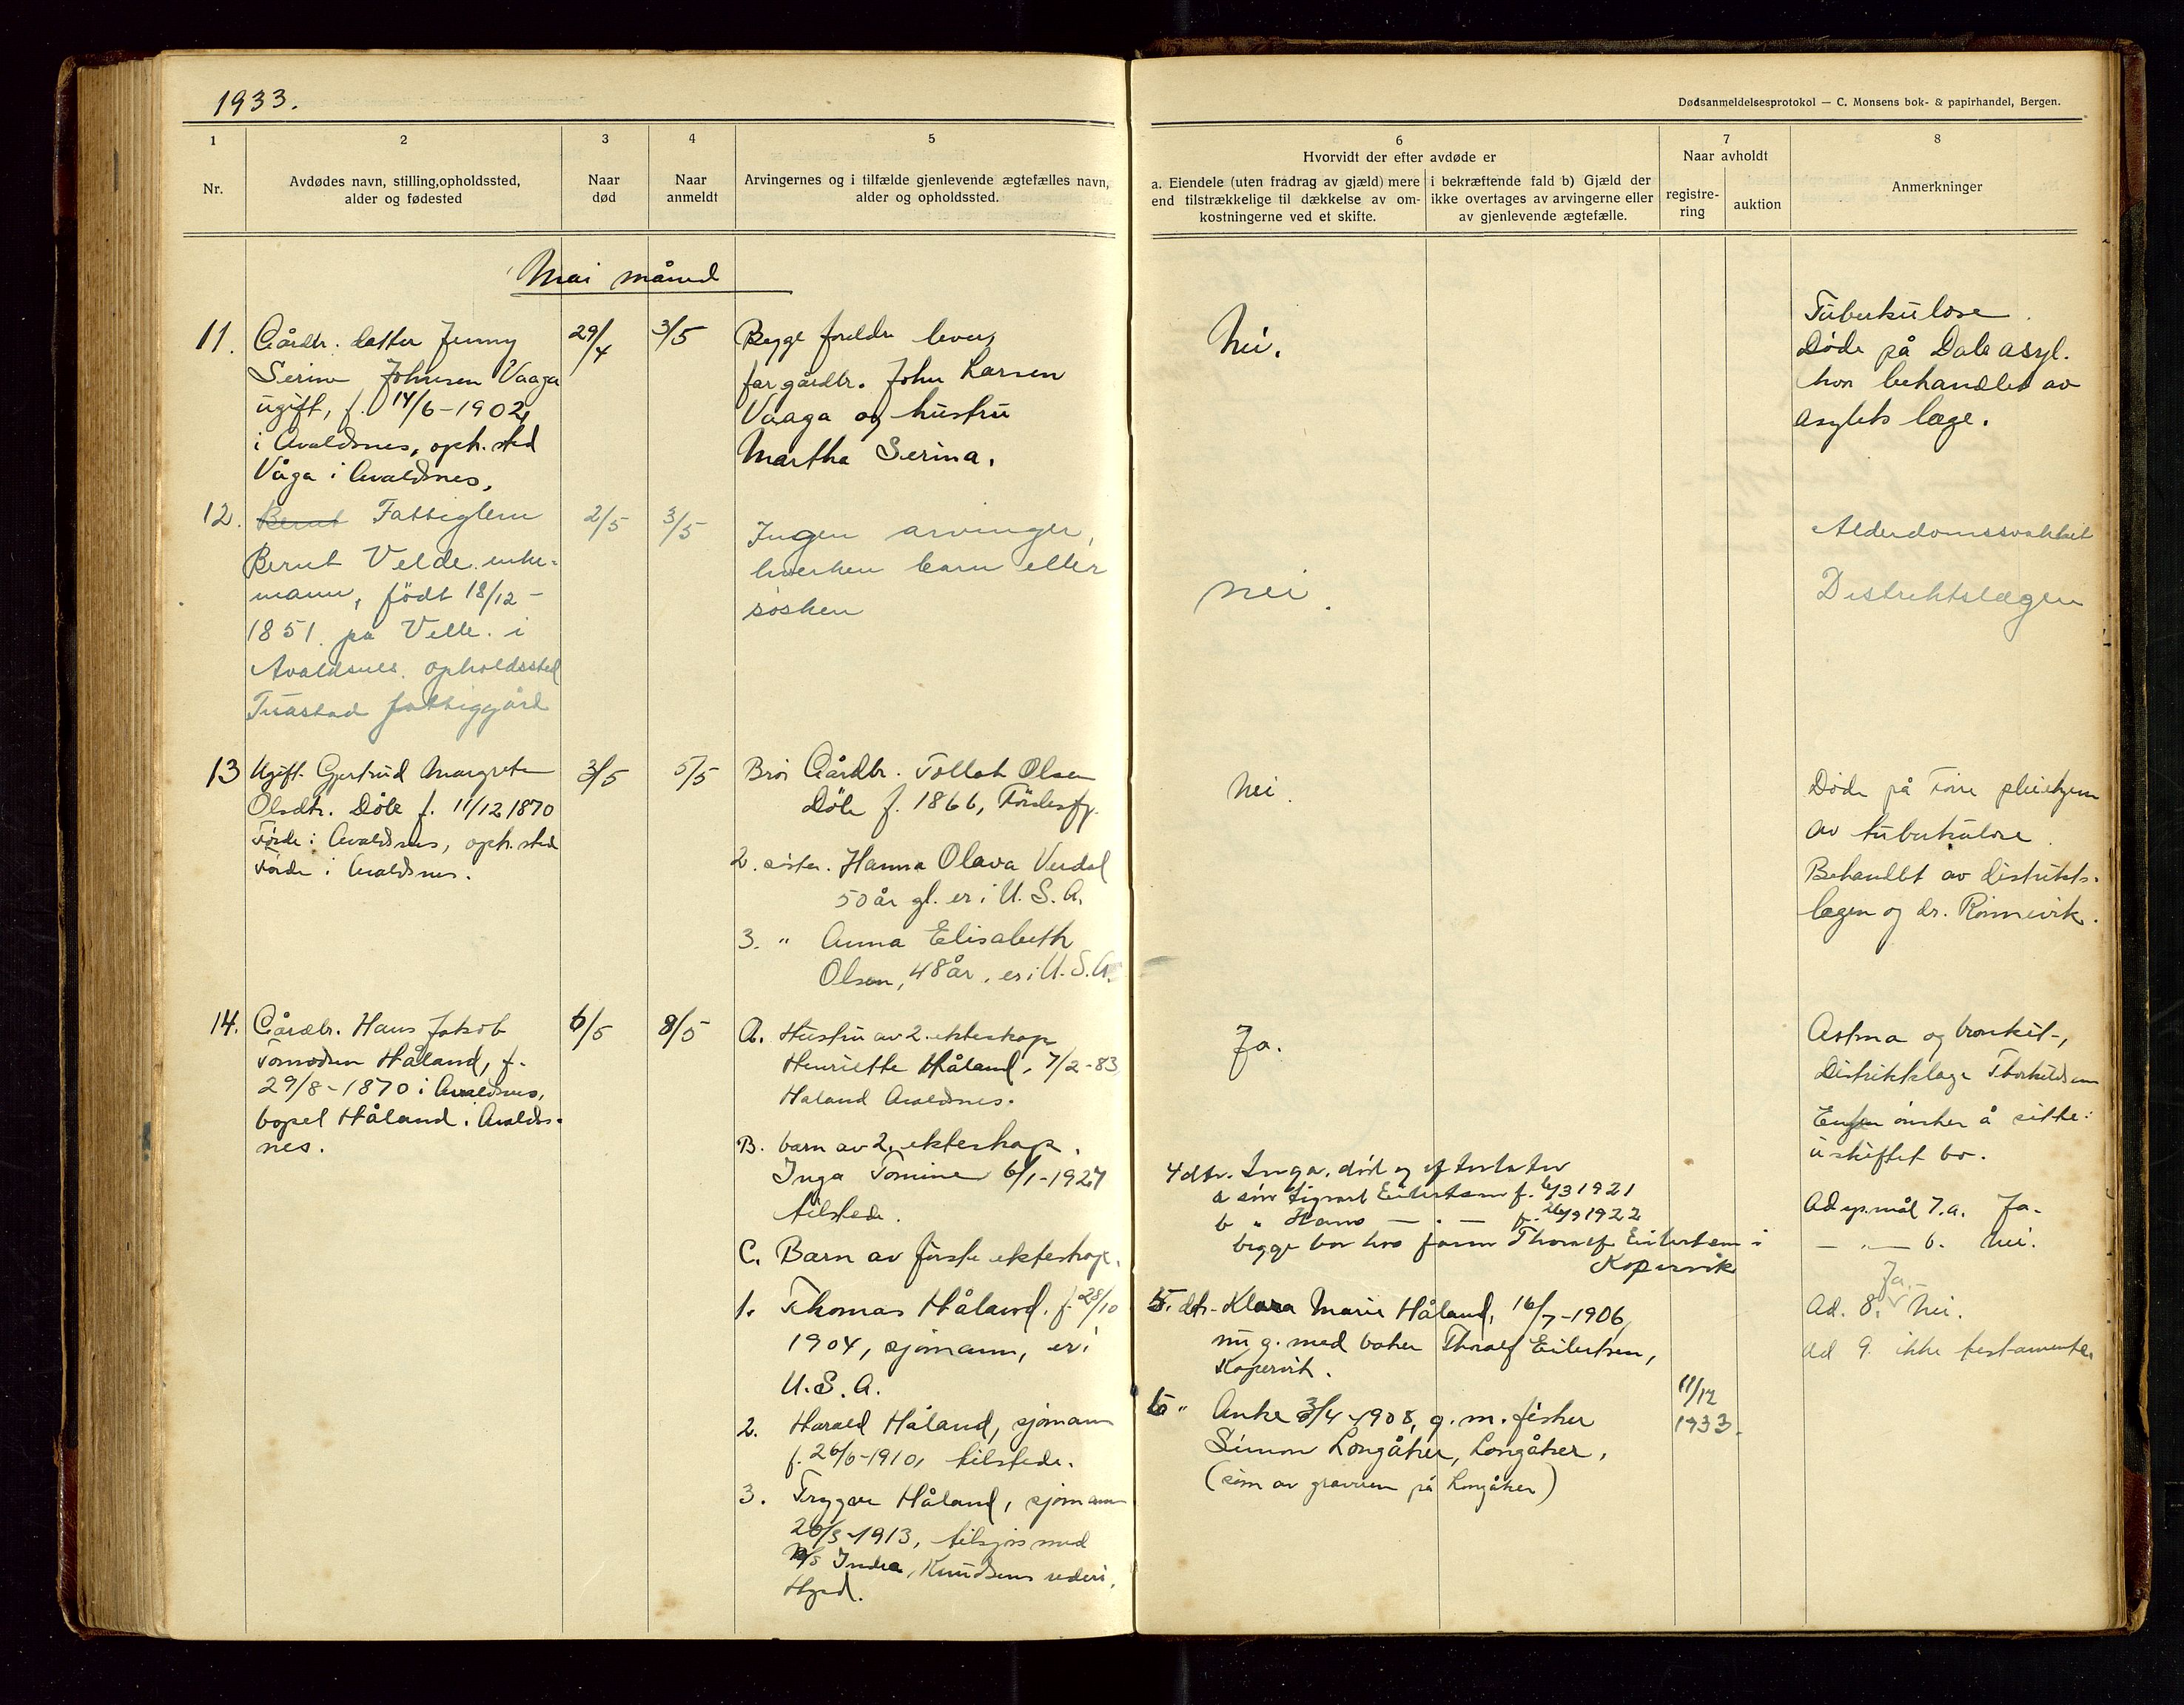 1933.
Dødsanmeldelsesprotokol — C. Monsens bok- & papirhandel, Bergen.
1
2
3
4
5
6
7
8
Nr.
Avdødes navn, stilling, opholdssted,
alder og fødested
Naar
død
Naar
anmeldt
Arvingernes og i tilfælde gjenlevende ægtefælles navn,
alder og opholdssted.
Hvorvidt der efter avdøde er
a. Eiendele (uten fradrag av gjæld) mere
end tilstrækkelige til dækkelse av om-
kostningerne ved et skifte.
i bekræftende fald b) Gjæld der
ikke overtages av arvingerne eller
av gjenlevende ægtefælle.
Naar avholdt
registre-
ring
auktion
Anmerkninger
Mai måned
11.
Gårdbr. datter Jenny
Serine Johnsen Vaaga
ugift, f. 14/6-1902,
i Avaldsnes, oph.sted
Våga i Avaldsnes,
29/4
3/5
Begge foreldre lever,
far gårdbr. John Larsen
Vaaga og hustru
Martha Serina.
Nei.
Tuberkulose.
Døde på Dale asyl.
hvor behandlet av
asylets læge.
12.
Bernt Fattiglem
Bernt Velde. enke-
mann, født 18/12-
1851 på Velle. i
Avaldsnes. opholdssted
Tuastad fattiggård
2/5
3/5
Ingen arvinger,
hverken barn eller
søsken
nei.
Alderdomssvakhet
Distriktslægen
13
Ugift Gjertrud Margrete
Olsdtr. Døle f. 11/12 1870
Førde i Avaldsnes, oph.sted
Førde i Avaldsnes.
3/5
5/5
Bror Gårdbr. Tollak Olsen
Døle f. 1866, Førdesfj.
2. søster. Hanna Olava Verdal
50 år gl. er i U.S.A.
3. " Anna Elisabeth
Olsen, 48 år. er i U.S.A.
Nei.
Døde på pleiehjem
av tuberkulose.
Behandlet av distrikts-
lægen og dr. Rønnevik.
14.
Gårdbr. Hans Jakob
Tomodsen Håland, f.
29/8-1870 i Avaldsnes,
bopel Håland i Avalds-
nes.
6/5
8/5
A. Hustru av 2. ekteskap
Henriette Håland, 7/2-83
Håland Avaldsnes.
B. barn av 2. ekteskap.
Inga Tomine 6/1-1927
tilstede.
C. Barn av første ekteskap.
1. Thomas Håland. f. 28/10
1904, sjømann, er i
U.S.A.
2. Harald Håland, sjømann
f. 26/6-1910, tilstede.
3. Trygve Håland, sjømann
20/5-1913, tilsjøs med
M/S Indra, Knudsens rederi,
Hgsd.
Ja.
4 dtr. Inga, død og efterlater
a søn Sigvart Eilertsen f. 6/3 1921
b " Hans — " — f. 26/9 1922
begge bor hos faren Thoralf Eilertsen i
Kopervik
5. dtr. Klara Marie Håland, 16/7-1906,
nu g. med baker Thoralf Eilertsen,
Kopervik.
6 " Anke 3/4-1908, g. m. fisker
Simon Longåker, Longåker.
(søn av graveren på Longåker)
11/12
1933.
Astma og bronkit-,
Distriktslæge Thorkildsen
Enken ønsker å sitte i
uskiftet bo.
Ad sp.mål 7.a. Ja.
— " — b. Nei.
Ja.
Ad. 8. Nei.
Ad 9. ikke testamente.